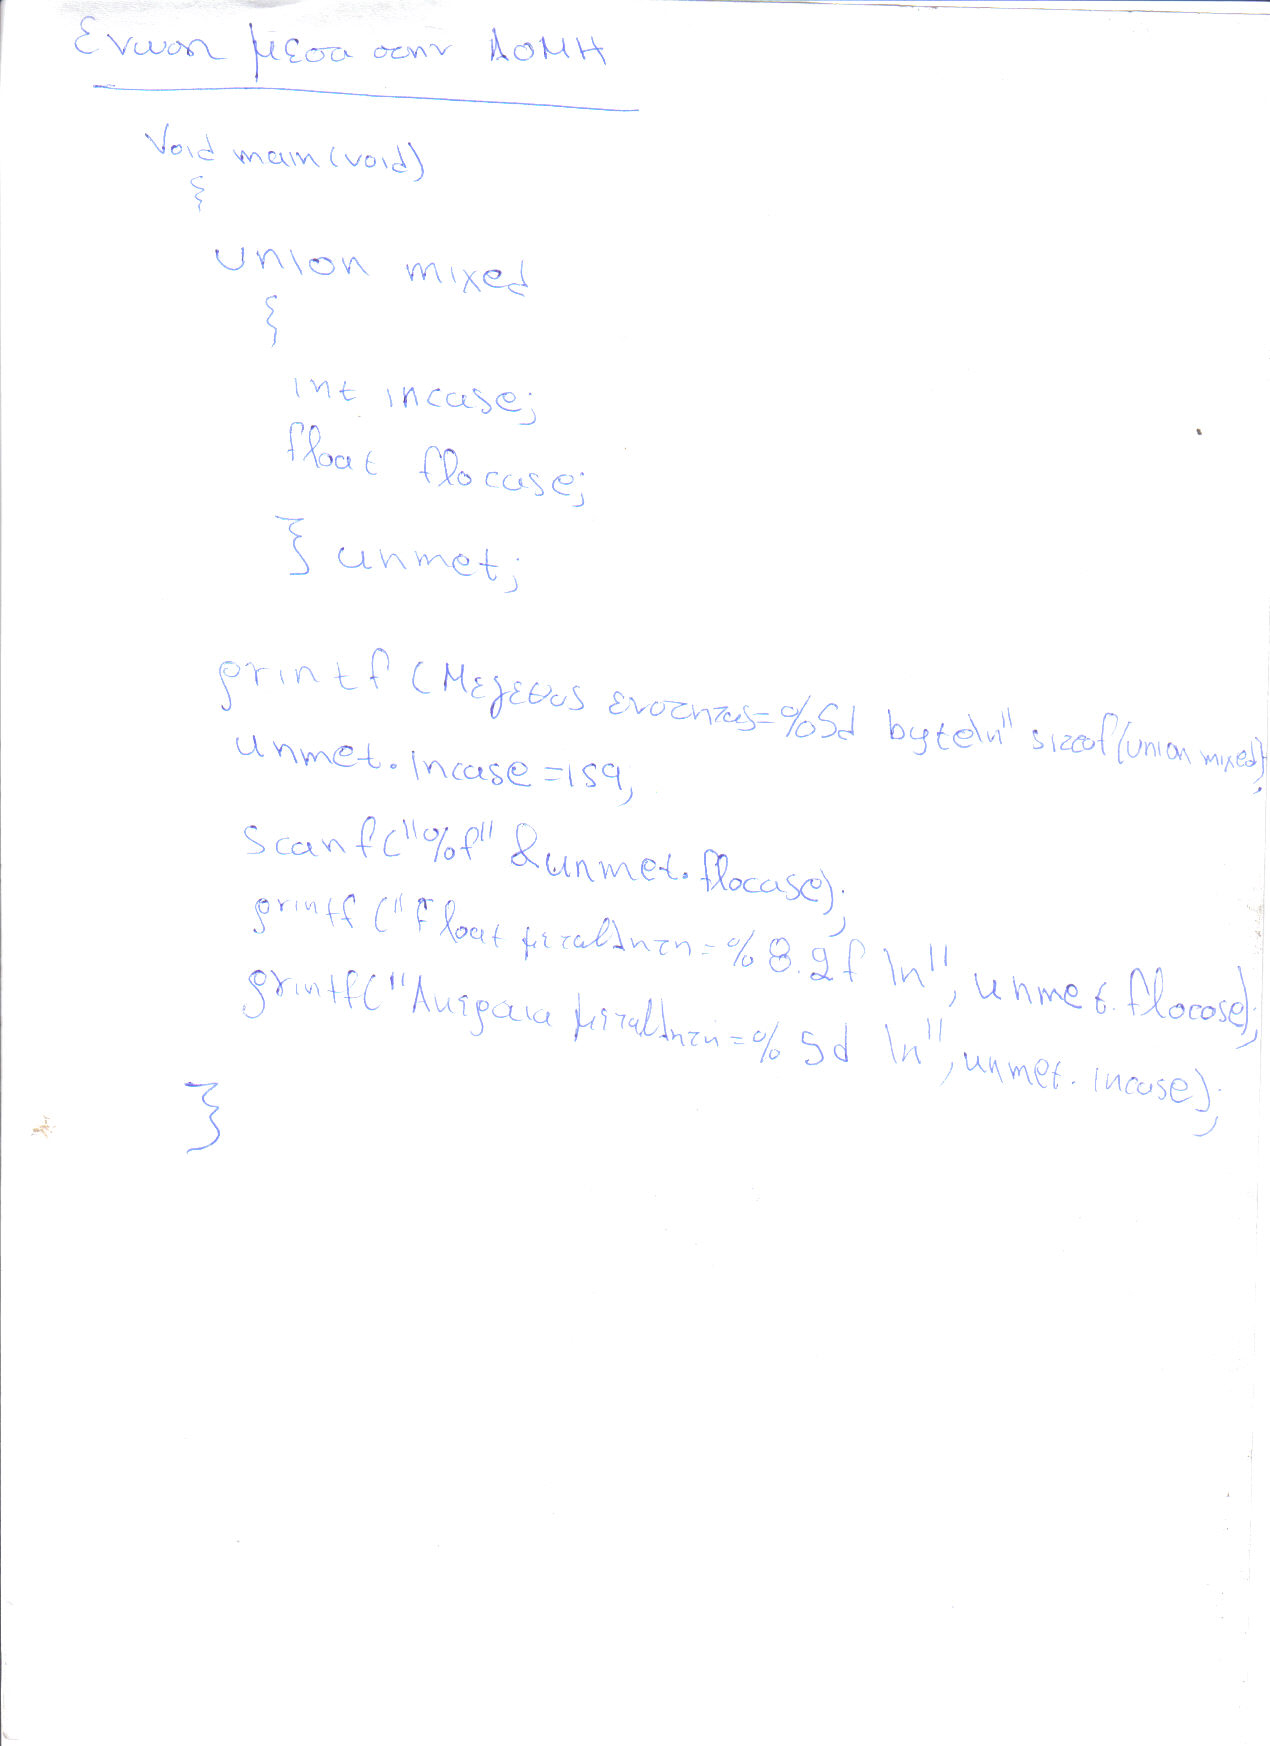 Ενωση μεσα στην ΔΟΜΗ
Void main(void)
{
union mixed
{
int incase;
float flocase;
} unmet;
printf (Μεγεθος ενοτητας=%5d byte\n" sizeof(union mixed);
unmet.incase=159;
scanf("%f" &unmet.flocase);
printf ("Float μεταβλητη=%8.2f \n", unmet.flocase);
printf("Ακεραια μεταβλητη=%5d \n", unmet.incase);
}